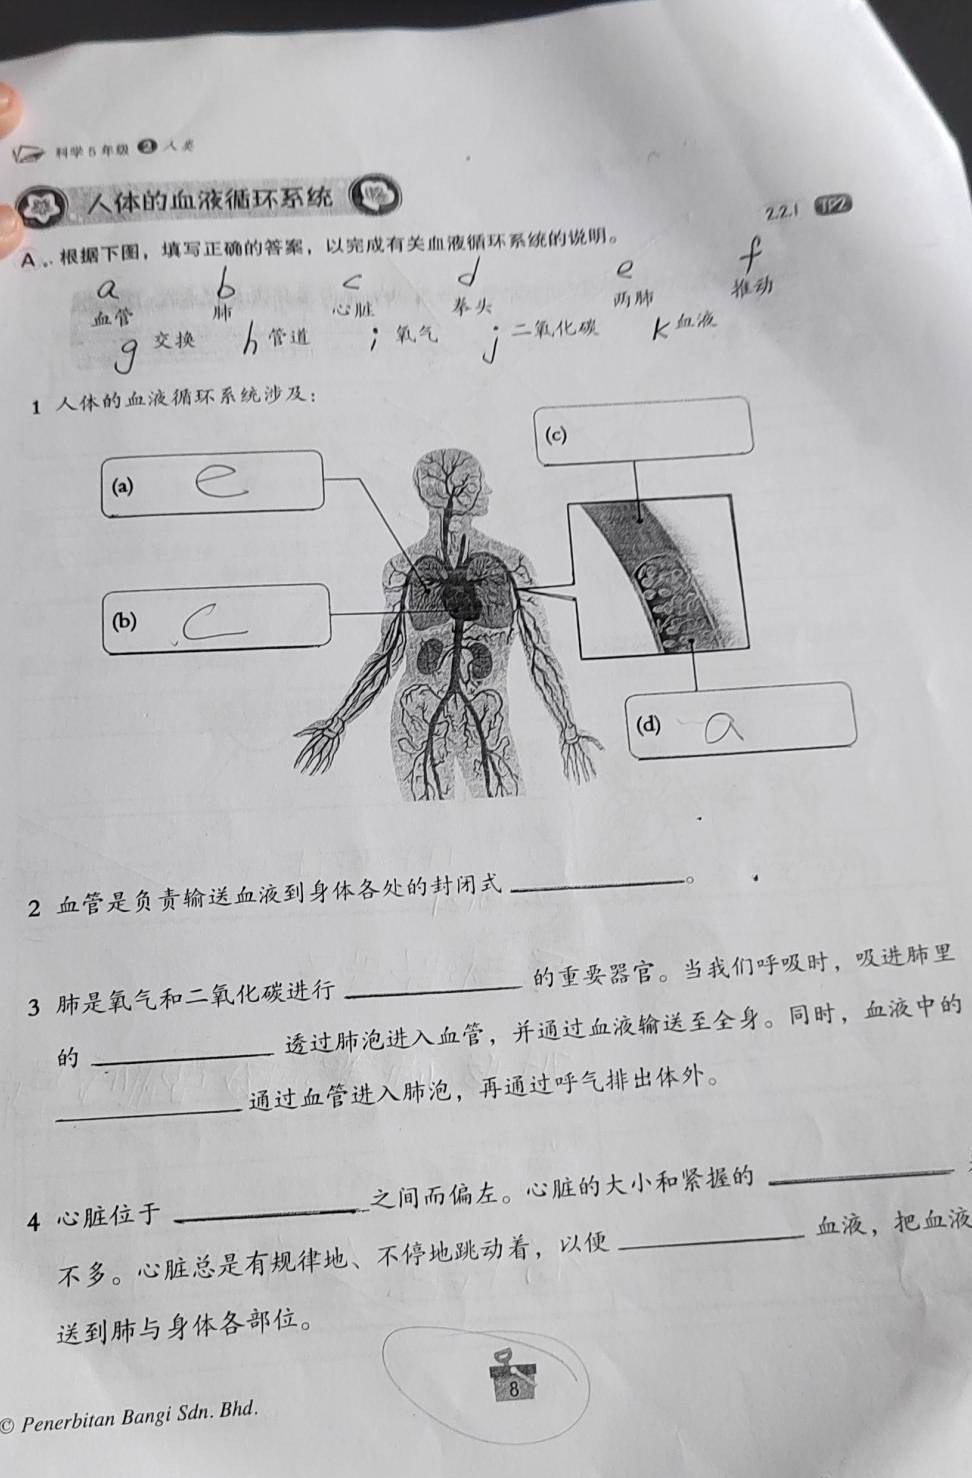 科学 5 年级 2 人类
人体的血液循环系统
2.2.1 TP2
A. 根据下图，填写正确的答案，以完成有关血液循环系统的说明。
a b c d e f
血管 肺 心脏 拳头 两肺 推动
g 交换 h 管道 i 氧气 j 二氧化碳 k 血液
1 人体的血液循环系统涉及：
(c)
(a) e
(b) c
(d) a
2 血管是负责输送血液到身体各处的封闭式 。
3 肺是氧气和二氧化碳进行 的重要器官。当我们呼吸时，吸进肺里
的 透过肺泡进入血管，并通过血液输送至全身。同时，血液中的
通过血管进入肺泡，再通过呼气排出体外。
4 心脏位于 之间而偏左。心脏的大小和紧握的
不多。心脏总是有规律地、不停地跳动着，以便 血液，把血液
送到肺与身体各部位。
8
© Penerbitan Bangi Sdn. Bhd.